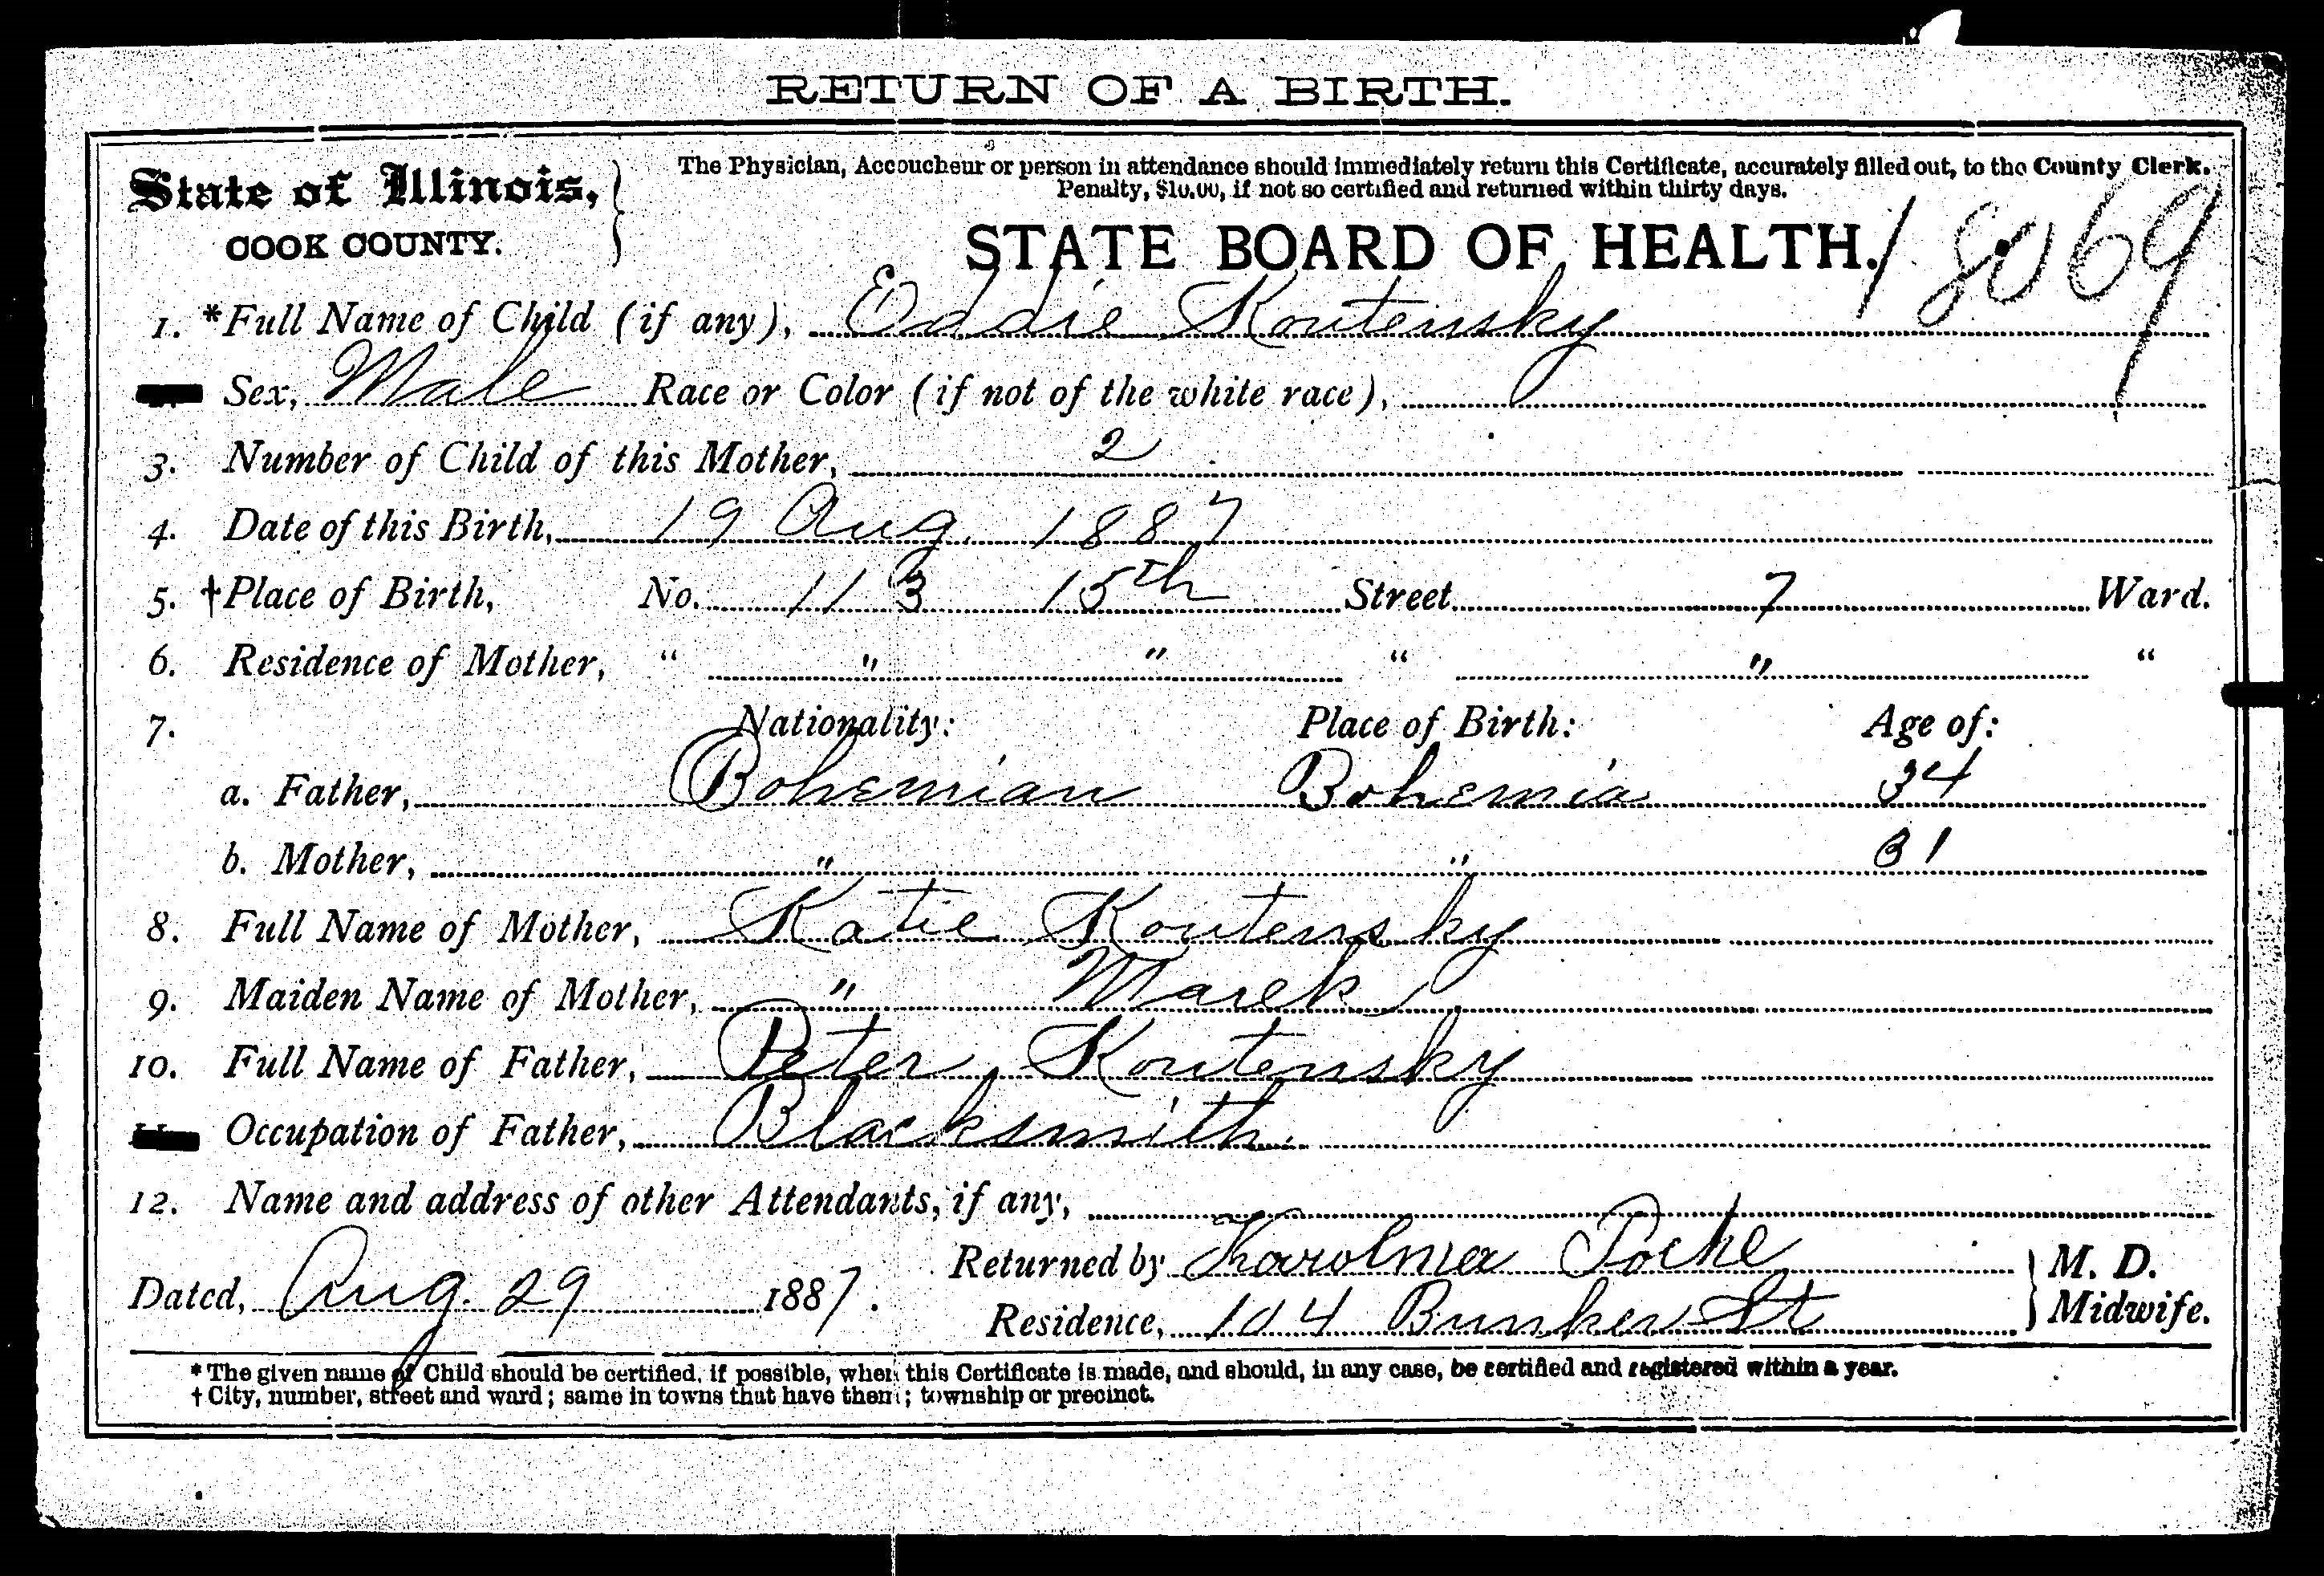 RETURN OF A BIRTH.
The Physician, Accoucheur or person in attendance should immediately return this Certificate, accurately filled out, to the County Clerk.
Penalty, $10.00, if not so certified and returned within thirty days.
State of Illinois,
COOK COUNTY.
STATE BOARD OF HEALTH. 18069
1. *Full Name of Child (if any), Eddie Koutensky
Sex, Male Race or Color (if not of the white race),
3. Number of Child of this Mother, 2
4. Date of this Birth, 19 Aug. 1887
5. †Place of Birth, No. 113 15th Street 7 Ward.
6. Residence of Mother, " " " " " "
7. Nationality: Place of Birth: Age of:
a. Father, Bohemian Bohemia 34
b. Mother, " " 31
8. Full Name of Mother, Katie Koutensky
9. Maiden Name of Mother, " Marek
10. Full Name of Father, Peter Koutensky
Occupation of Father, Blacksmith.
12. Name and address of other Attendants, if any,
Returned by Karolina M. D.
Dated, Aug. 29 1887.
Residence, 104 Bunker St Midwife.
* The given name of Child should be certified, if possible, when this Certificate is made, and should, in any case, be certified and registered within a year.
† City, number, street and ward; same in towns that have them; township or precinct.